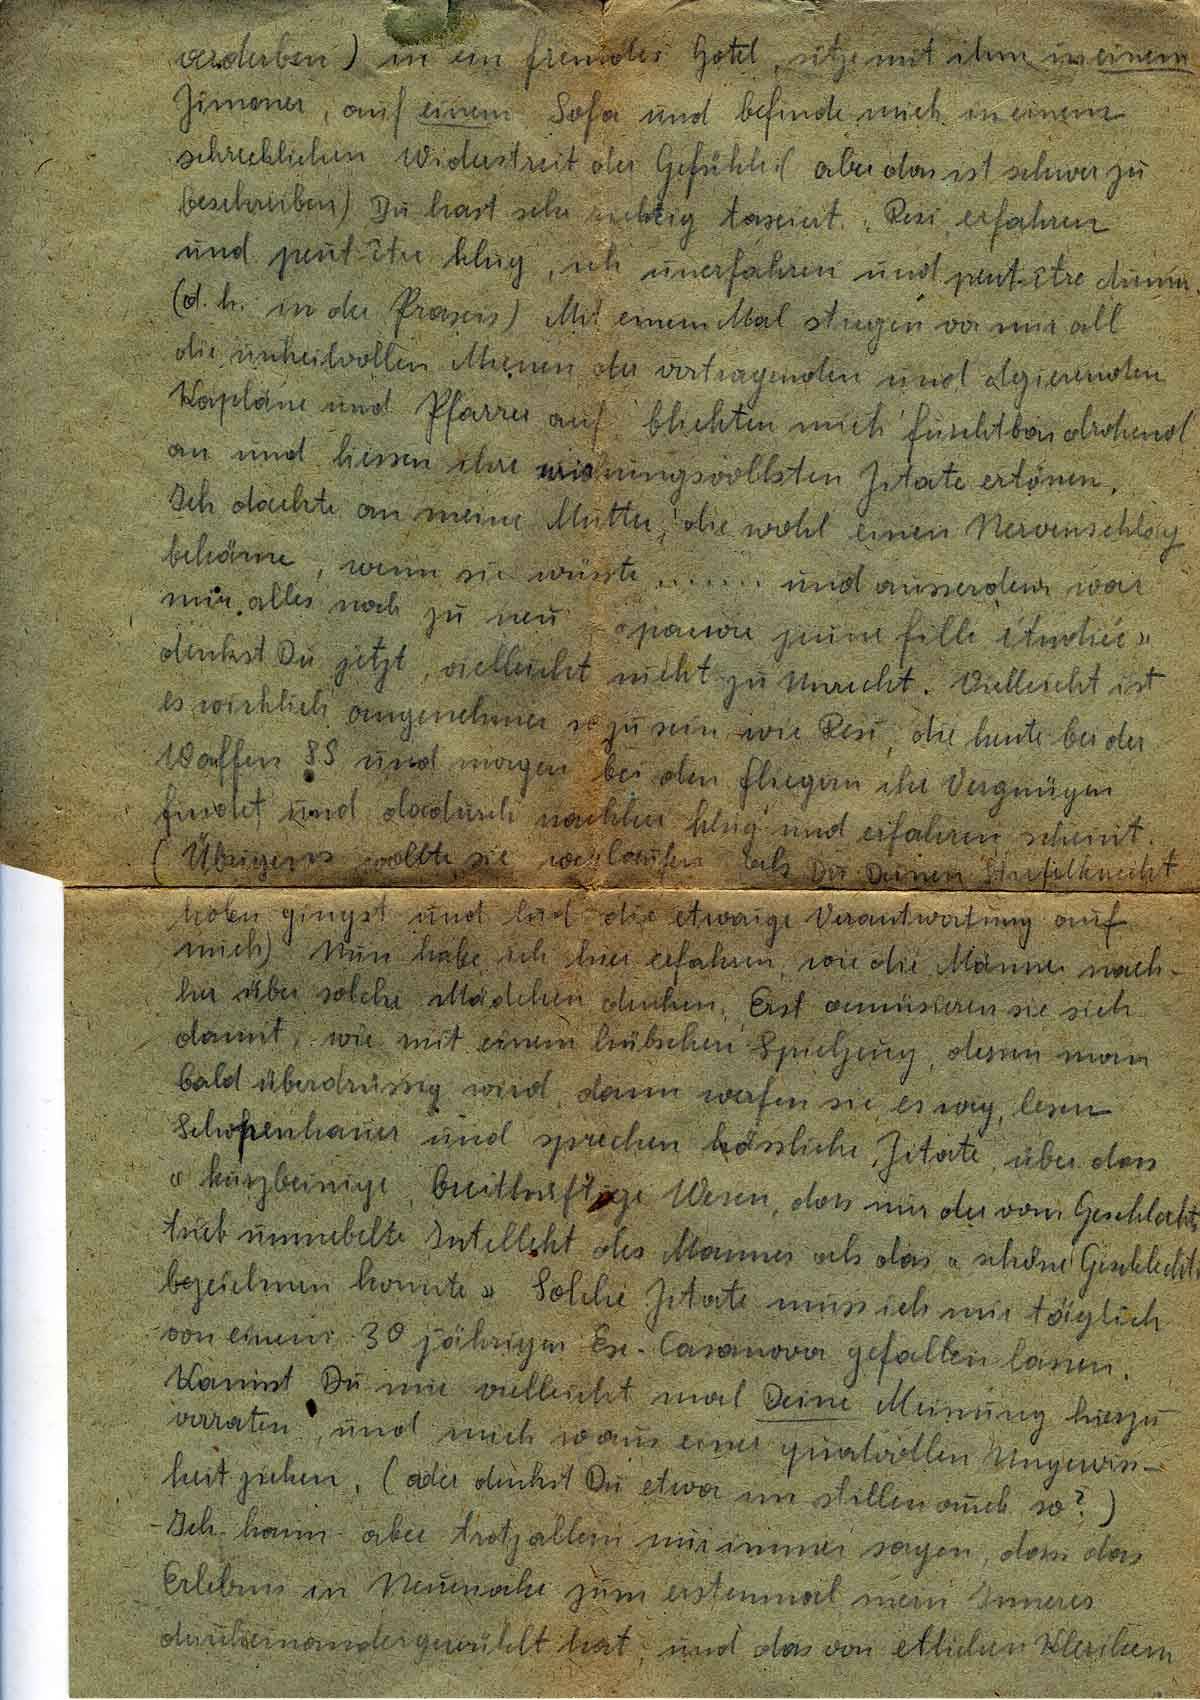 verderben) in ein fremdes Hotel, sitze mit ihm in einem
Zimmer, auf einem Sofa und befinde mich in einem
schrecklichen Widerstreit der Gefühle (aber das ist schwer zu
beschreiben) Du hast sehr richtig taxiert. Resi, erfahren
und peut-être klug, ich unerfahren und peut-être dumm.
(d. h. in der Praxis) Mit einem Mal stiegen vor mir all
die unheilvollen Mienen der vortragenden und
Kapläne und Pfarrer auf blickten mich furchtbar drohend
an und liessen ihre Zitate ertönen.
Ich dachte an meine Mutter, die wohl einen Nervenschlag
bekäme, wenn sie wüsste ....... und ausserdem war
mir alles noch zu neu « pauvre jeune fille étudiée »
denkst Du jetzt, vielleicht nicht zu Unrecht. Vielleicht ist
es wirklich angenehmer so zu sein wie Resi, die heute bei der
Waffen SS und morgen bei den Fliegern ihr Vergnügen
findet und dadurch nachher klug und erfahren scheint.
(Übrigens wollte sie weglaufen als Du Deinen Stiefelknecht
holen gingst und lud die etwaige Verantwortung auf
mich) Nun habe ich hier erfahren, wie die Männer nach-
her über solche Mädchen denken. Erst amüsieren sie sich
damit, wie mit einem hübschen Spielzeug, dessen man
bald überdrüssig wird, dann werfen sie es weg, lesen
Schopenhauer und sprechen hässliche Zitate, über das
« kurzbeinige, breithüftige Wesen, das nur der vom Geschlechts
trieb umnebelte Intellekt des Mannes als das « schöne Geschlecht
bezeichnen konnte » Solche Zitate muss ich mir täglich
von einem 30 jährigen Ex-Casanova gefallen lassen.
Kannst Du mir vielleicht mal Deine Meinung hierzu
verraten, und mich so aus einer qualvollen Ungewiss-
heit ziehen. (oder denkst Du etwa im stillen auch so?)
Ich kann aber trotzallem mir immer sagen, dass das
Erlebnis in zum erstenmal mein Inneres
durcheinandergewühlt hat, und das von etlichen Klerikern